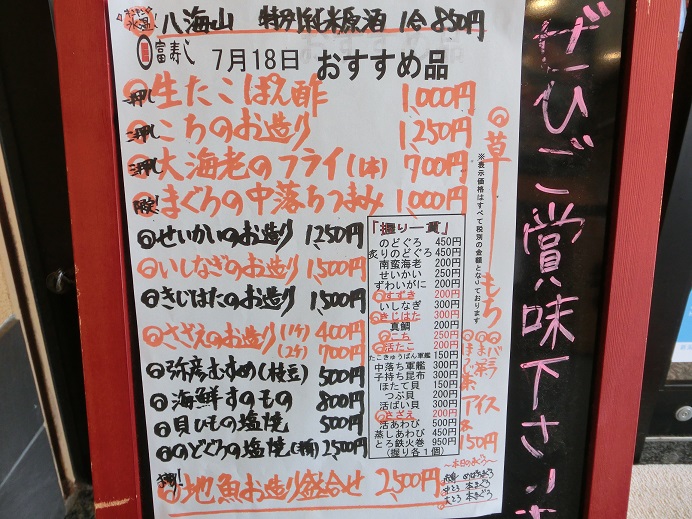 八海山 特別純米原酒 1合 850円
富寿し 7月18日 おすすめ品
一押し 生たこぽん酢 1,000円
二押し こちのお造り 1,250円
三押し 大海老のフライ(1本) 700円
殿! まぐろの中落ちつまみ 1,000円
せいかいのお造り 1,250円
いしなぎのお造り 1,500円
きじはたのお造り 1,500円
さざえのお造り(1ケ) 400円
(2ケ) 700円
弥彦むすめ(枝豆) 500円
海鮮すのもの 800円
貝ひもの塩焼 500円
のどぐろの塩焼 2,500円
地魚お造り盛合せ 2,500円
「握り一貫」
のどぐろ 450円
炙りのどぐろ 450円
南蛮海老 200円
せいかい 250円
ずわいがに 200円
すずき 200円
いしなぎ 300円
きじはた 300円
真鯛 200円
こち 250円
活たこ 200円
たこきゅうばん軍艦 150円
中落ち軍艦 300円
子持ち昆布 300円
ほたて貝 150円
つぶ貝 200円
活ばい貝 300円
さざえ 200円
活あわび 500円
蒸しあわび 450円
とろ鉄火巻 950円
(握り各1個)
※表示価格はすべて税別の金額となりております
草もち
バニラ
まっ茶
ほうじ茶
アイス
各150円
~本日のまぐろ~
赤身 めばちまぐろ
中とろ 本まぐろ
大とろ 本まぐろ
ぜひご賞味下さい